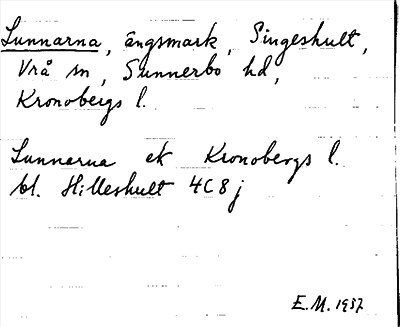 Lunnarna, ängsmark, Singeshult,
Vrå sn, Sunnerbo hd,
Kronobergs l.
Lunnarna ek Kronobergs l.
bl. Hilleshult 4C8j
E.M. 1937